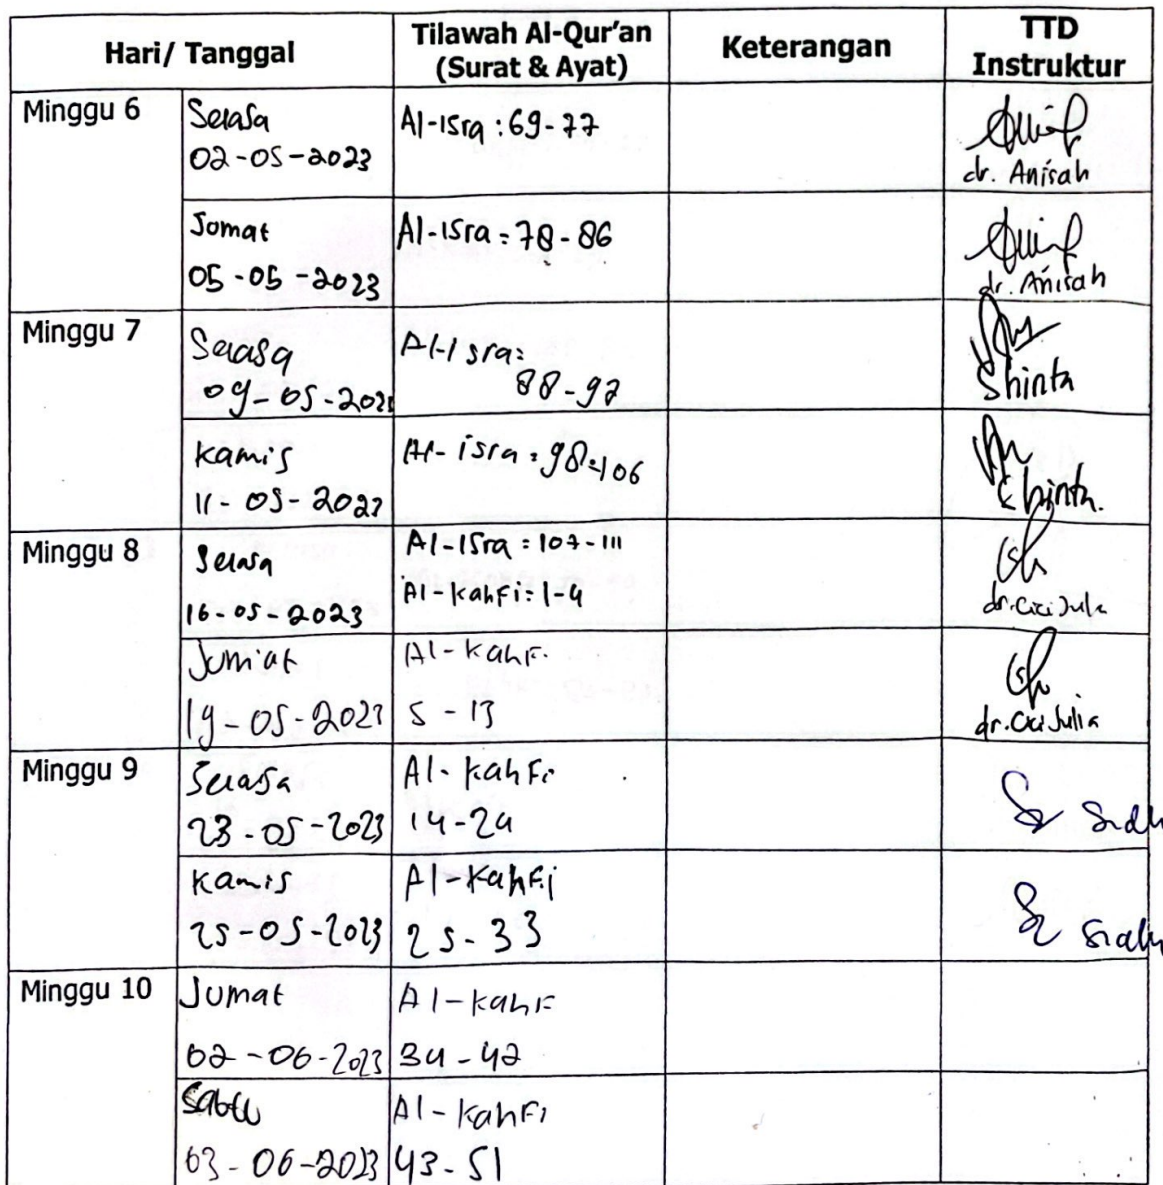 Hari/ Tanggal
Tilawah Al-Qur'an
(Surat & Ayat)
Keterangan
TTD
Instruktur
Minggu 6
Selasa
02-05-2023
Al-Isra : 69-77
dr. Anisah
Jomat
05-05-2023
Al-Isra : 78-86
dr. Anisah
Minggu 7
Selasa
09-05-2023
Al-Isra:
88-97
Shinta
Kamis
11-05-2023
Al-isra : 98-106
Shinta.
Minggu 8
Selasa
16-05-2023
Al-Isra : 107-111
Al-Kahfi : 1-4
dr. Cici Julia
Jum'at
19-05-2023
Al-Kahfi
5 - 13
dr. Cici Julia
Minggu 9
Selasa
23-05-2023
Al-Kahfi
14-24
Kamis
25-05-2023
Al-Kahfi
25-33
Minggu 10
Jumat
02-06-2023
Al-Kahf
34-42
Sabtu
03-06-2023
Al-Kahfi
43-51